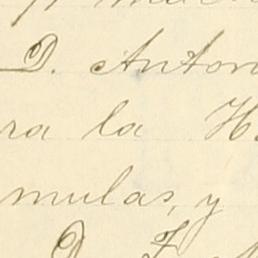 D. Anton
ra la H
mulas, y
D. F